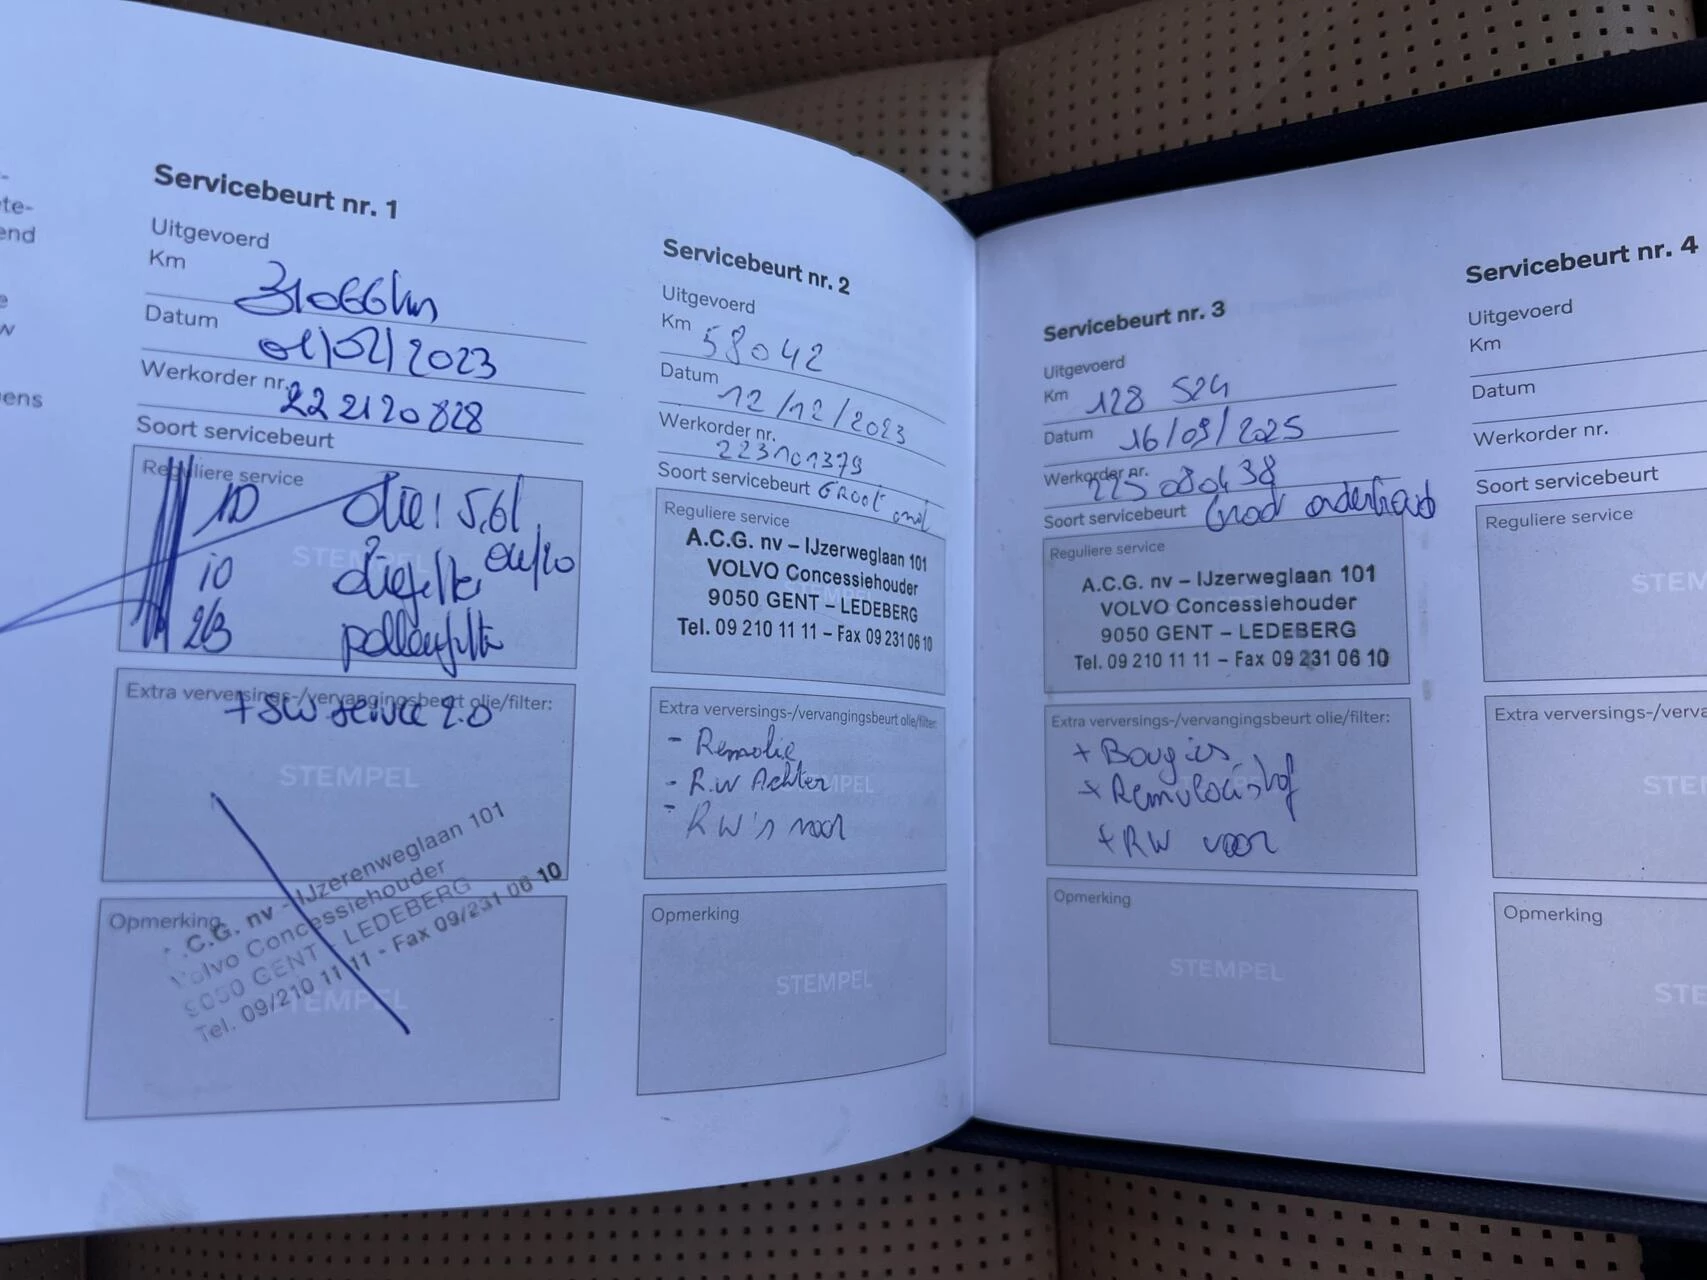 te-
end
e
w
ens
Servicebeurt nr. 1
Uitgevoerd
Km 31066km
Datum 01/02/2023
Werkorder nr. 222120828
Soort servicebeurt
Reguliere service
10 olie: 5,6l
STEMPEL
10 oliefilter
263 pollenfilter
Extra verversings-/vervangingsbeurt olie/filter:
+ SW service 2.0
STEMPEL
Opmerking
.C.G. nv - IJzerenweglaan 101
Volvo Concessiehouder
9050 GENT - LEDEBERG
Tel. 09/210 11 11 - Fax 09/231 06 10
STEMPEL
Servicebeurt nr. 2
Uitgevoerd
Km 58042
Datum 12/12/2023
Werkorder nr.
223101379
Soort servicebeurt Groot ond
Reguliere service
A.C.G. nv – IJzerweglaan 101
VOLVO Concessiehouder
9050 GENT – LEDEBERG
Tel. 09 210 11 11 – Fax 09 231 06 10
Extra verversings-/vervangingsbeurt olie/filter:
- Remolie
- R.W Achter
- RW's voor
Opmerking
STEMPEL
Servicebeurt nr. 3
Uitgevoerd
Km 128 524
Datum 16/09/2025
Werkorder nr.
225080438
Soort servicebeurt Groot onderhoud
Reguliere service
A.C.G. nv – IJzerweglaan 101
VOLVO Concessiehouder
9050 GENT – LEDEBERG
Tel. 09 210 11 11 – Fax 09 231 06 10
Extra verversings-/vervangingsbeurt olie/filter:
+ Bougies
+ Remvloeistof
+ RW voor
Opmerking
STEMPEL
Servicebeurt nr. 4
Uitgevoerd
Km
Datum
Werkorder nr.
Soort servicebeurt
Reguliere service
STEM
Extra verversings-/verva
STE
Opmerking
STE